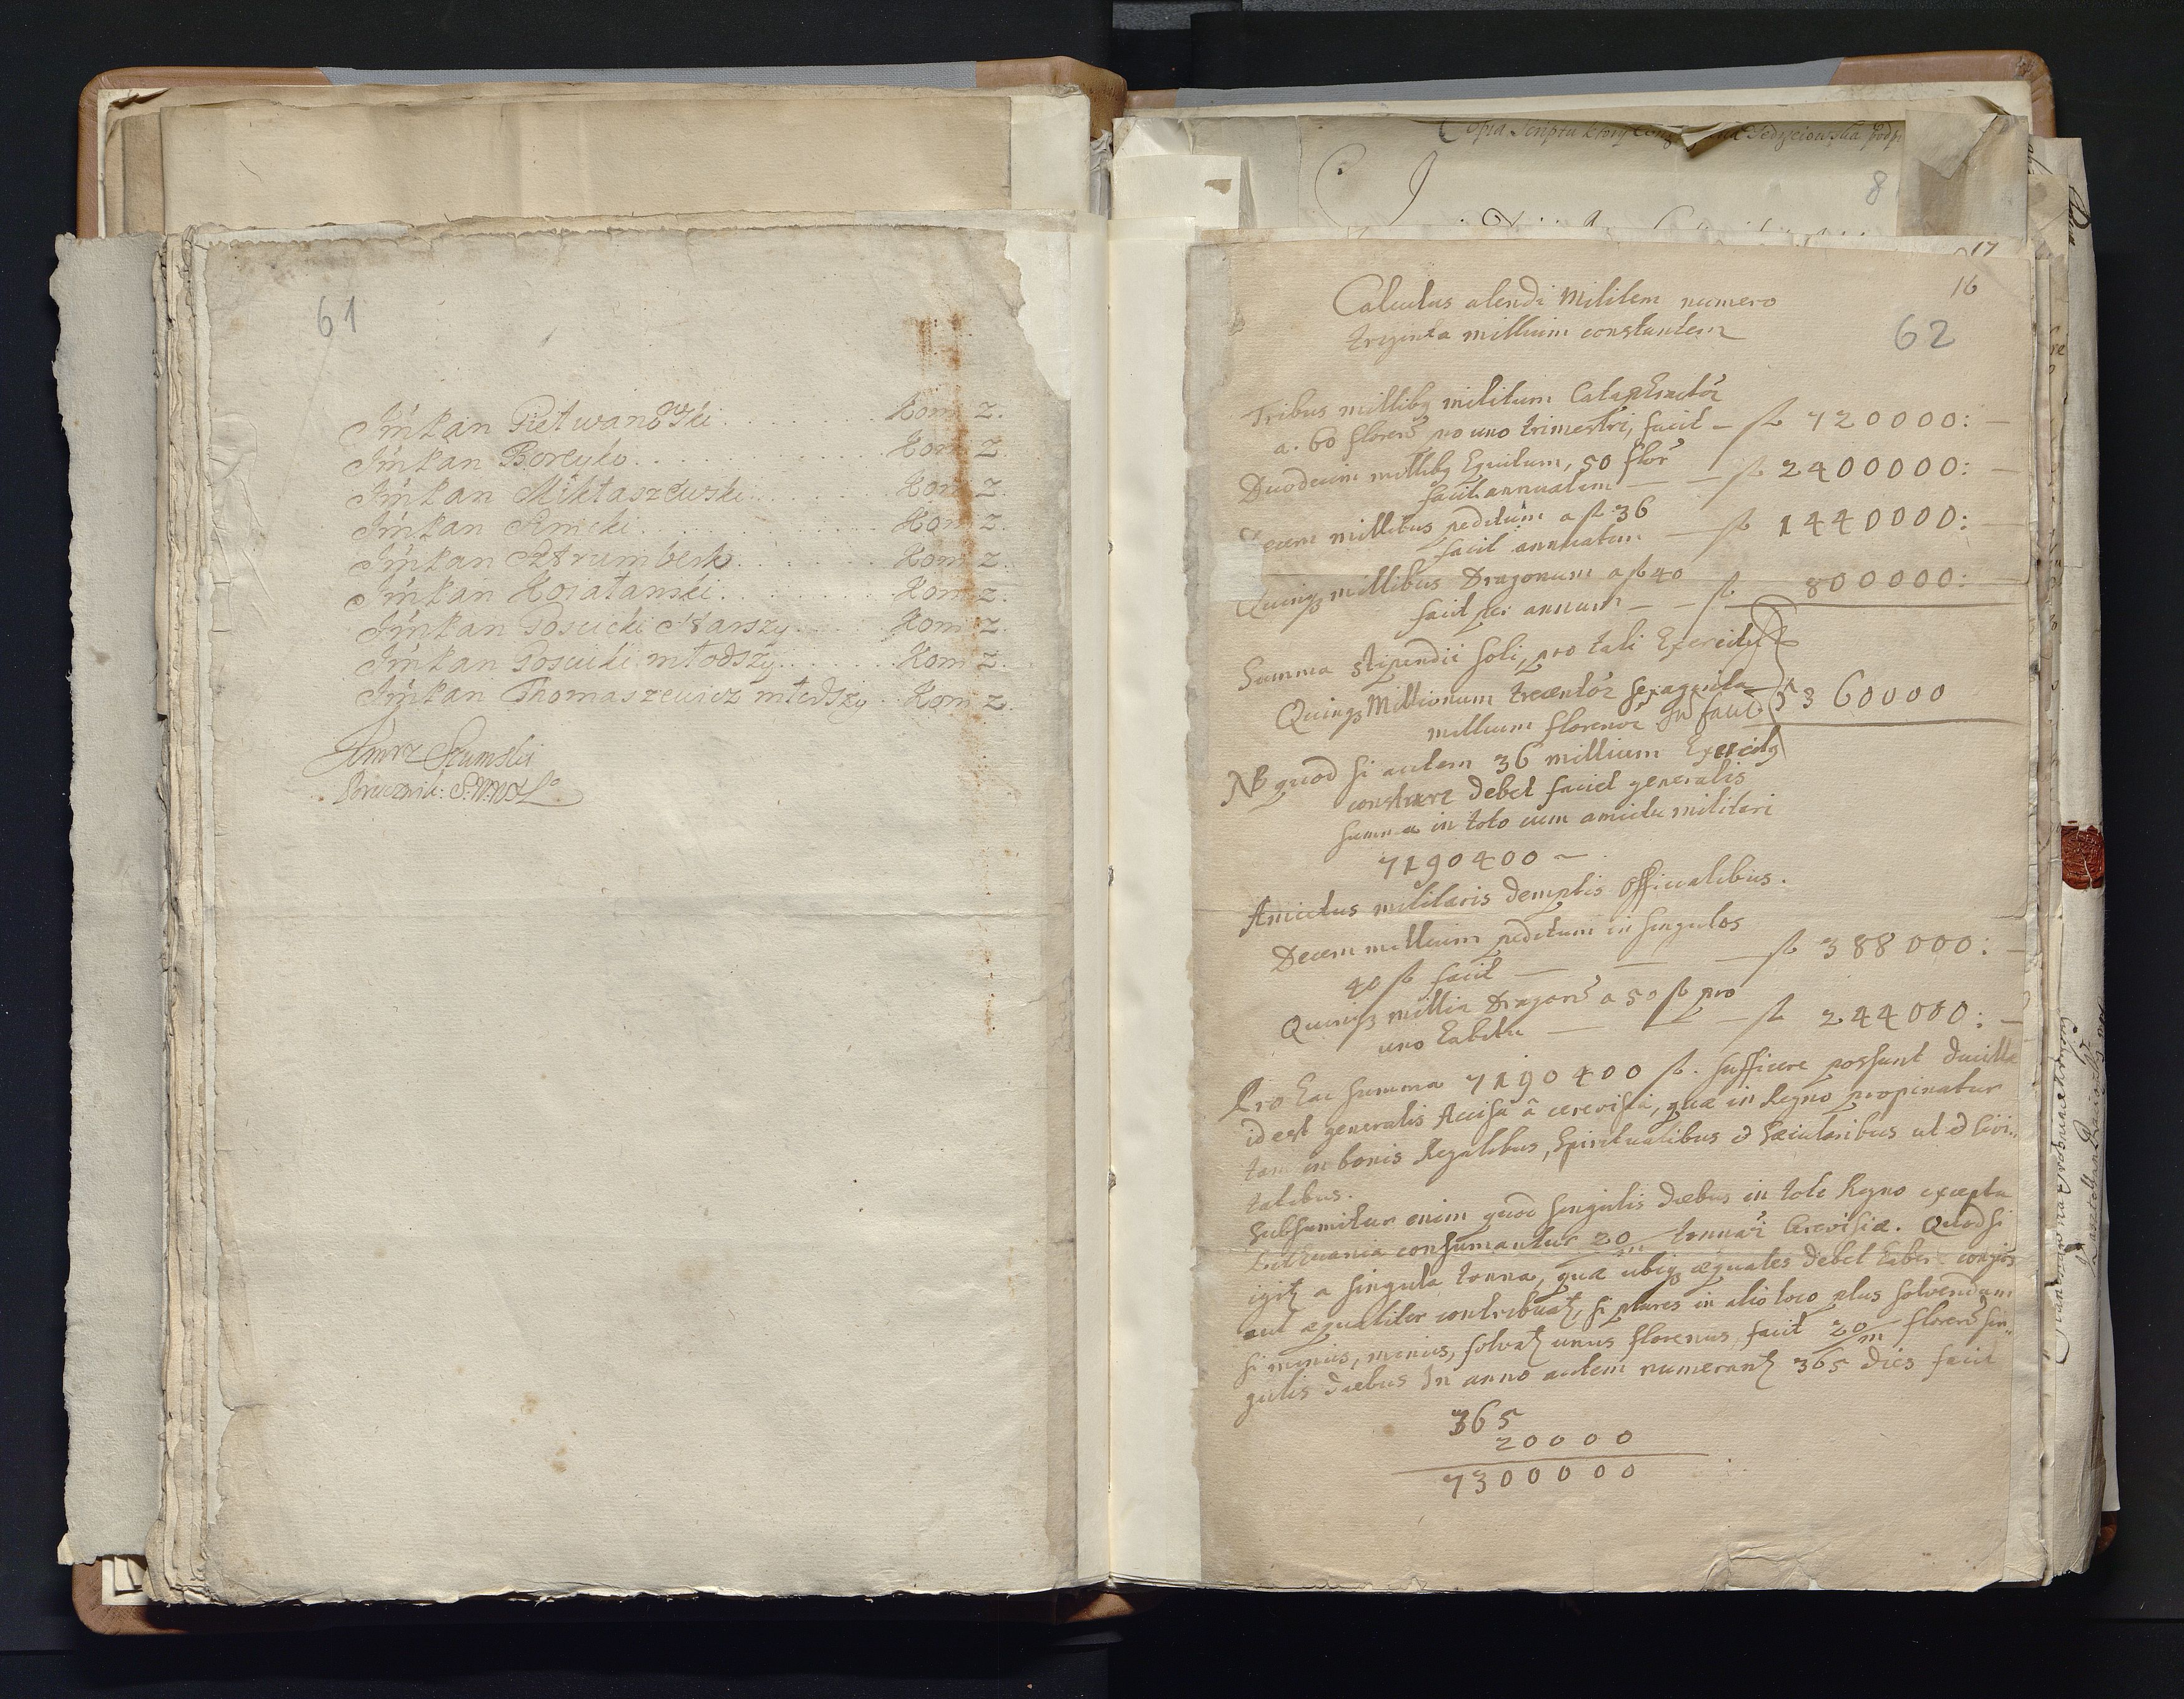 61
Jmć Pan Pietwanowski . . . . . . . Kom z.
Jmć Pan Boreyko . . . . . . . Kom z.
Jmć Pan Mikłaszewski . . . . . . . Kom z.
Jmć Pan . . . . . . . Kom z.
Jmć Pan Sztrumberk . . . . . . . Kom z.
Jmć Pan . . . . . . . Kom z.
Jmć Pan Starszy . . . . . Kom z.
Jmć Pan młodszy . . . . . . Kom z.
Jmć Pan Thomaszewicz młodszy . . Kom z.
Szumski
Copia Scriptu
8
17
16
62
Calculus alendi Militem numero
triginta millium constantem
Tribus millibq militum Cataphractor
a. 60 floren pro uno trimestri, facit – fl 720000: –
Duodecim millibq Equitum, 50 flor
facit annuatim — – fl 2400000: –
Decem millibus peditum a fl 36
facit annuatim — fl 1440000: –
Quinqz millibus Dragonum a fl 40
facit per annum – – fl 800000: –
Summa stipendii soli, pro tali Exercitu
Quinqz Millionum trecentor sexaginta
millium florenor facit 5360000
NB quod si autem 36 millium Exercitq
constare debet faciet generalis
summa in toto cum amictu militari
7190400 ~
Amictus militaris demptis Officialibus.
Decem millium peditum in singulos
40 fl facit — — — fl 388000: –
Quinqz millia Dragon a 50 fl pro
uno habitu — — – fl 244000: –
Pro hac summa 7190400 fl. sufficere possunt ducilla
id est generalis Accisa â cerevisia, quæ in Regno propinatur
tam in bonis Regalibus, Spiritualibus et Sæcularibus ut et Civi„
tatibus.
Subsumitur enim quod singulis diebus in toto Regno excepta
Lithuania consumantur 20/m tonnar Cerevisiæ. Quodsi
igitz a singula tonna, quæ ubiqz æquales debet habere congios
aut æqualiter contribuatz, si plures in alio loco plus solvendum
si minus, minus, solvatz unus florenus facit 20/m floren sin„
gulis diebus In anno autem numerantz 365 dies facit
365
20000
7300000